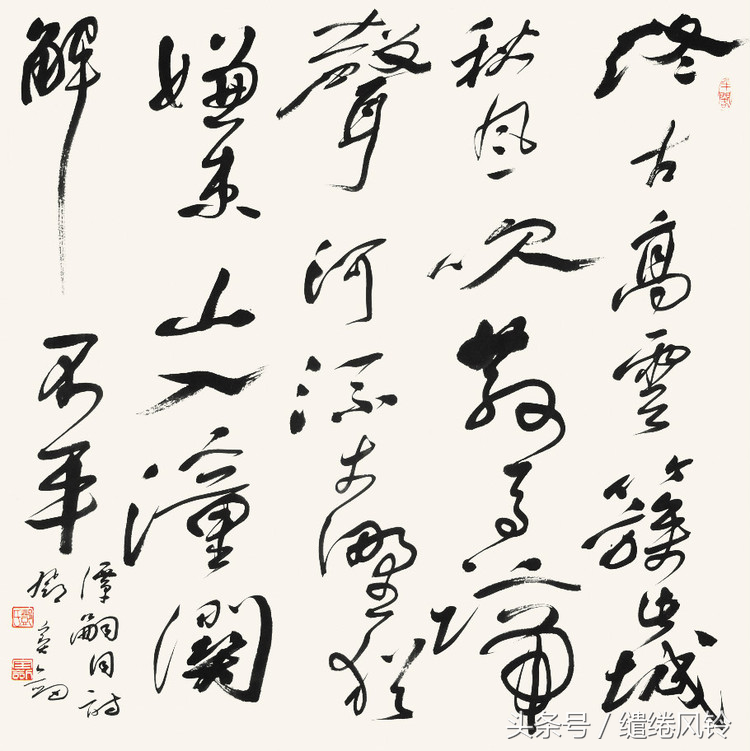 終古高雲簇此城
秋風吹散馬蹄
聲河流大野猶
嫌束山入潼關
解不平
譚嗣同詩
鄧宝劍
头条号 / 缱绻风铃